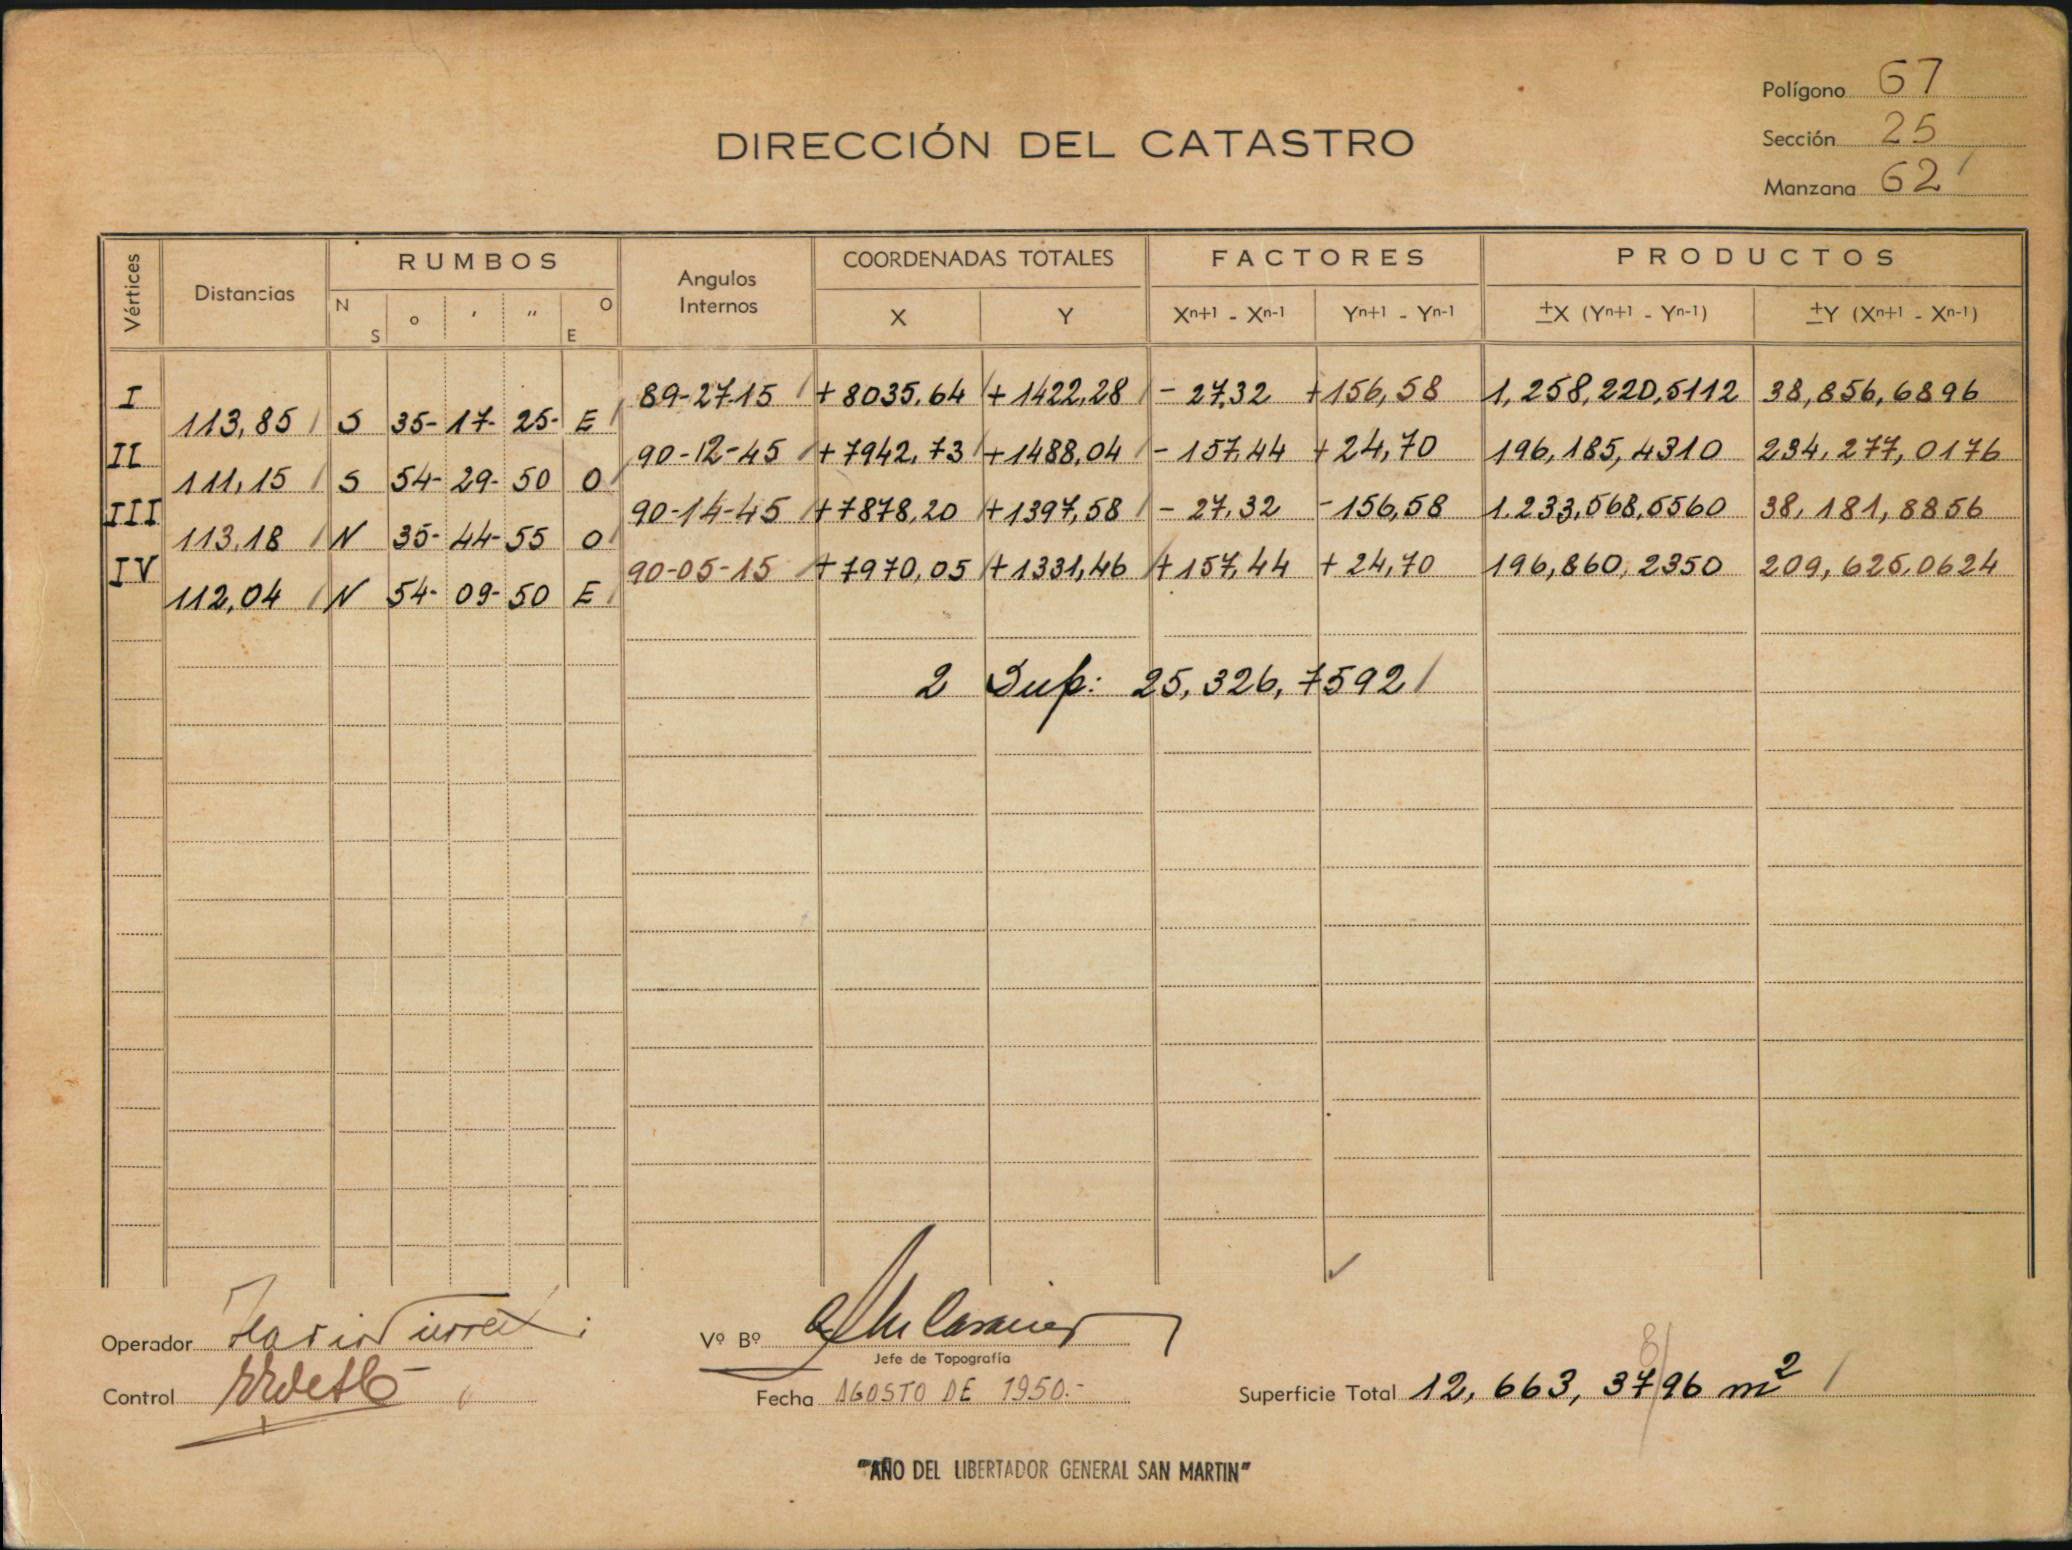 Polígono 67
DIRECCIÓN DEL CATASTRO
Sección 25
Manzana 62
Vértices Distancias RUMBOS Angulos Internos COORDENADAS TOTALES FACTORES PRODUCTOS
N S o ' " O E X Y Xn+1 - Xn-1 Yn+1 - Yn-1 ±X (Yn+1 - Yn-1) ±Y (Xn+1 - Xn-1)
I 89-27-15 +8035,64 +1422,28 - 27,32 +156,58 1,258,220,5112 38,856,6896
113,85 S 35- 17- 25- E
II 90-12-45 +7942,73 +1488,04 - 157,44 +24,70 196,185,4310 234,277,0176
111,15 S 54- 29- 50 O
III 90-14-45 +7878,20 +1397,58 - 27,32 -156,58 1.233,568,5560 38,181,8856
113,18 N 35- 44- 55 O
IV 90-05-15 +7970,05 +1331,46 +157,44 +24,70 196,860,2350 209,625,0624
112,04 N 54- 09- 50 E
2 Sup: 25,326,7592
Operador
Vº Bº
Jefe de Topografía
Control
Fecha AGOSTO DE 1950.-
Superficie Total 12,663,3796 m²
8
"AÑO DEL LIBERTADOR GENERAL SAN MARTIN"